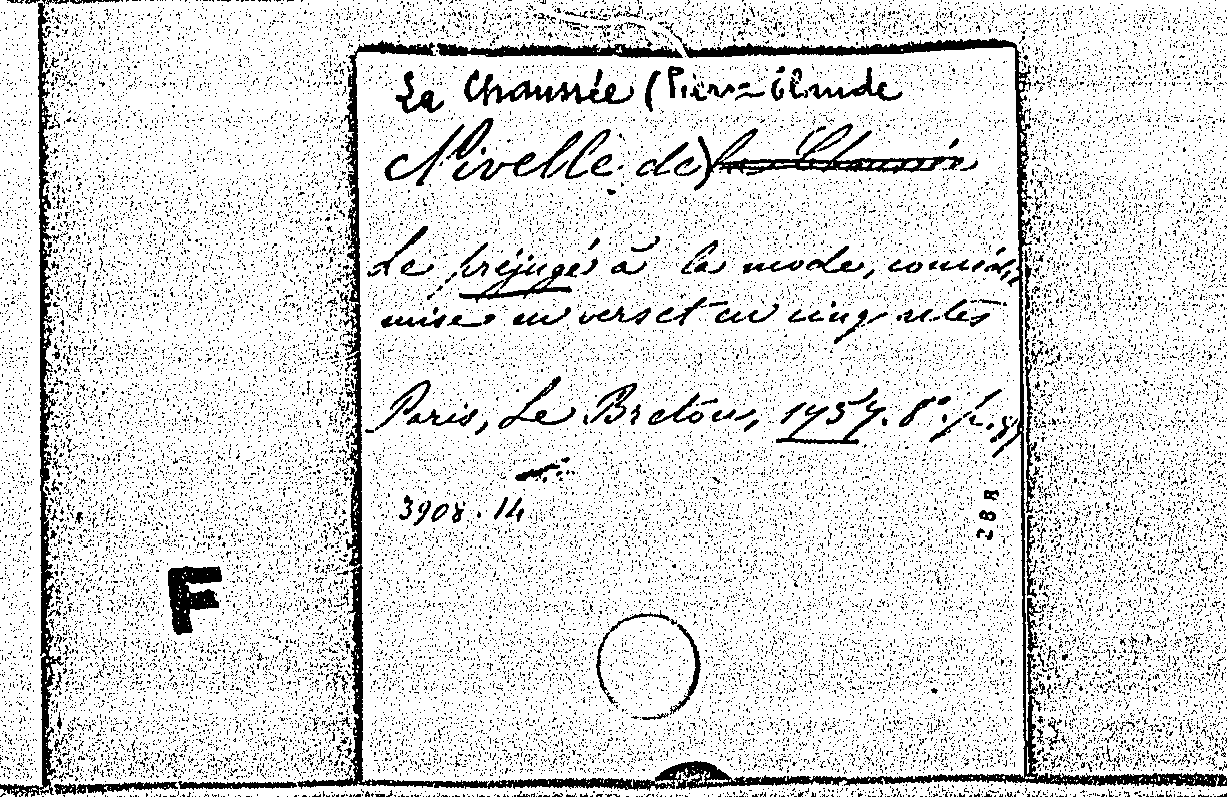 La Chaussée (Pierre Claude
Nivelle de) La Chaussée
Le préjugé à la mode, comédie,
mise en vers et en cinq actes
Paris, Le Breton, 1757. 8°.
3908.14
288
F